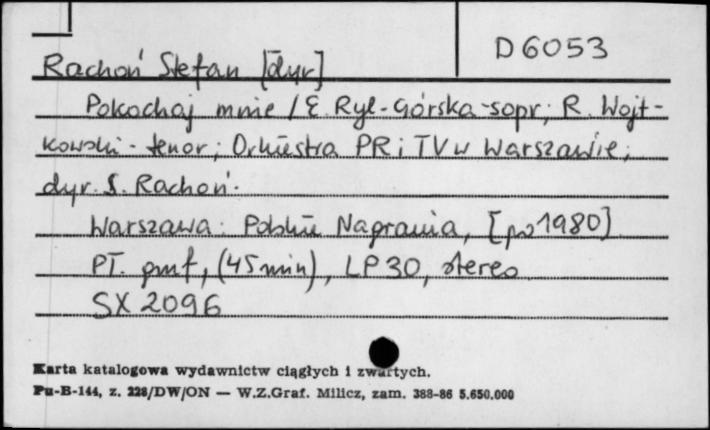 D 6053
Rachoń Stefan [dyr]
Pokochaj mnie / E. Rył-Górska-sopr; R. Wojt-
kowski-tenor; Orkiestra PR i TV w Warszawie;
dyr. S. Rachoń.
Warszawa: Polskie Nagrania, [po 1980]
PT. gmf, (45 min), LP 30, stereo
SX 2096
Karta katalogowa wydawnictw ciągłych i zwartych.
Pu-B-144, z. 228/DW/ON — W.Z.Graf. Milicz, zam. 388-86 5.650.000